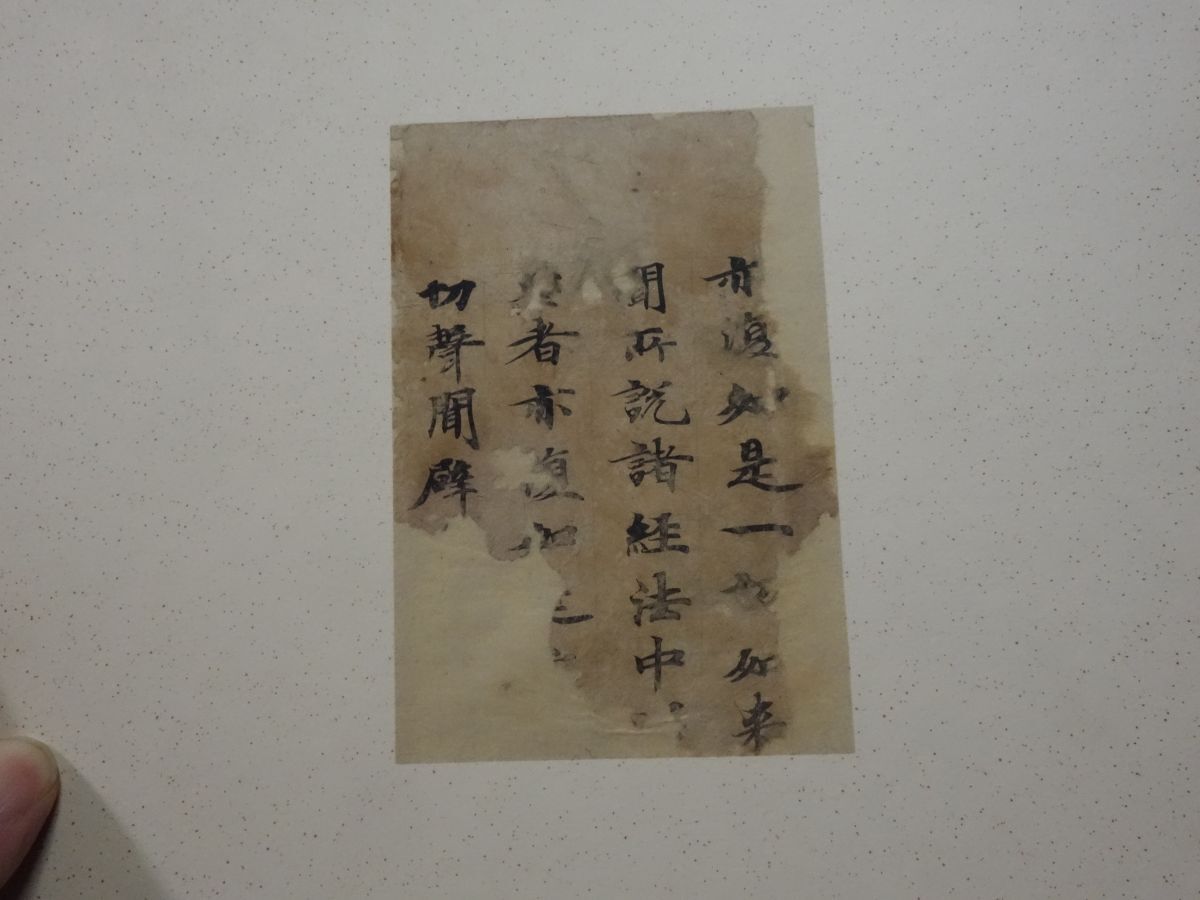 亦復如是一切如来
聞所説諸經法中
典者亦復如是
切聲聞辟